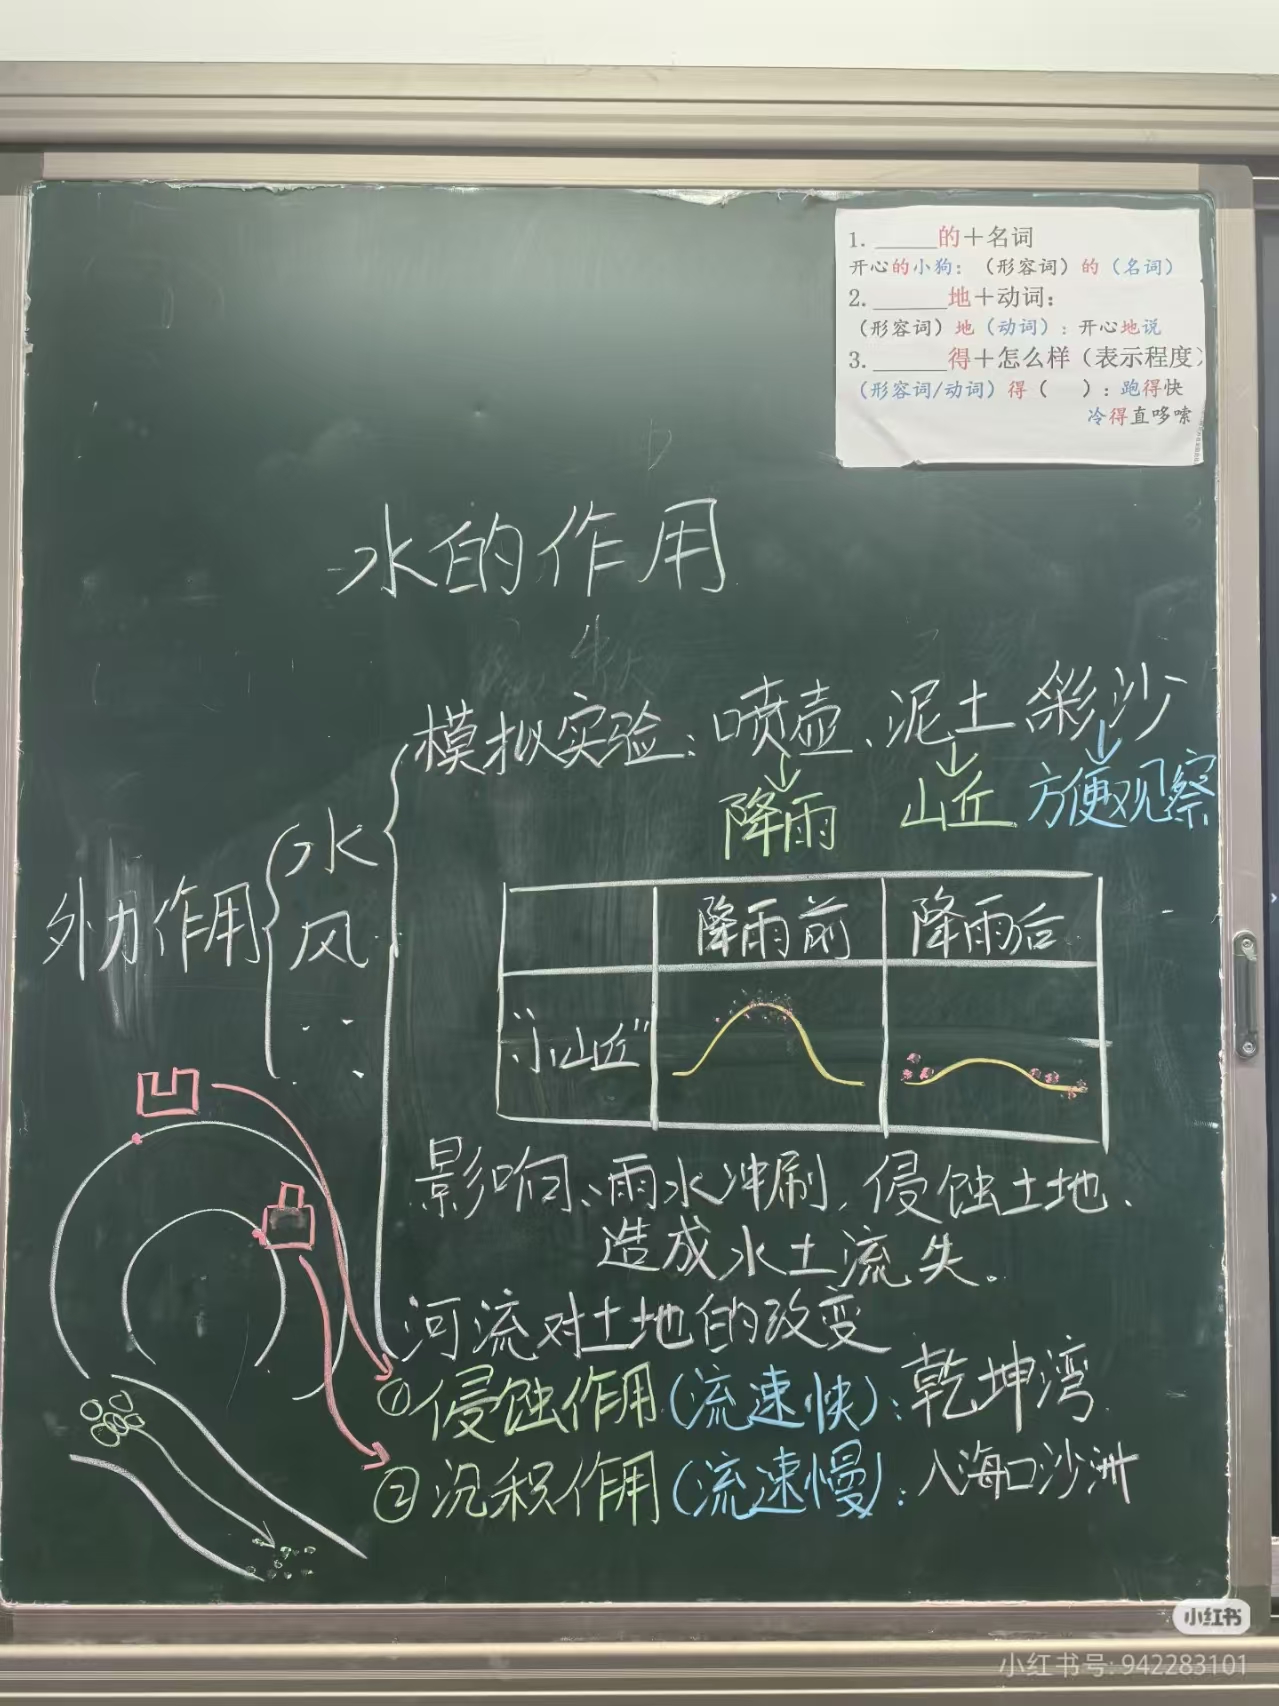 1. ______的+名词
开心的小狗：（形容词）的（名词）
2. ______地+动词：
（形容词）地（动词）：开心地说
3. ______得+怎么样（表示程度）
（形容词/动词）得（ ）：跑得快
冷得直哆嗦
水的作用
模拟实验：喷壶、泥土 彩沙
降雨 山丘 方便观察
外力作用
水
风
降雨前 降雨后
“小山丘”
影响、雨水冲刷，侵蚀土地、
造成水土流失。
河流对土地的改变
①侵蚀作用(流速快)：乾坤湾
②沉积作用(流速慢)：入海口沙洲
凹
凸
小红书
小红书号: 942283101